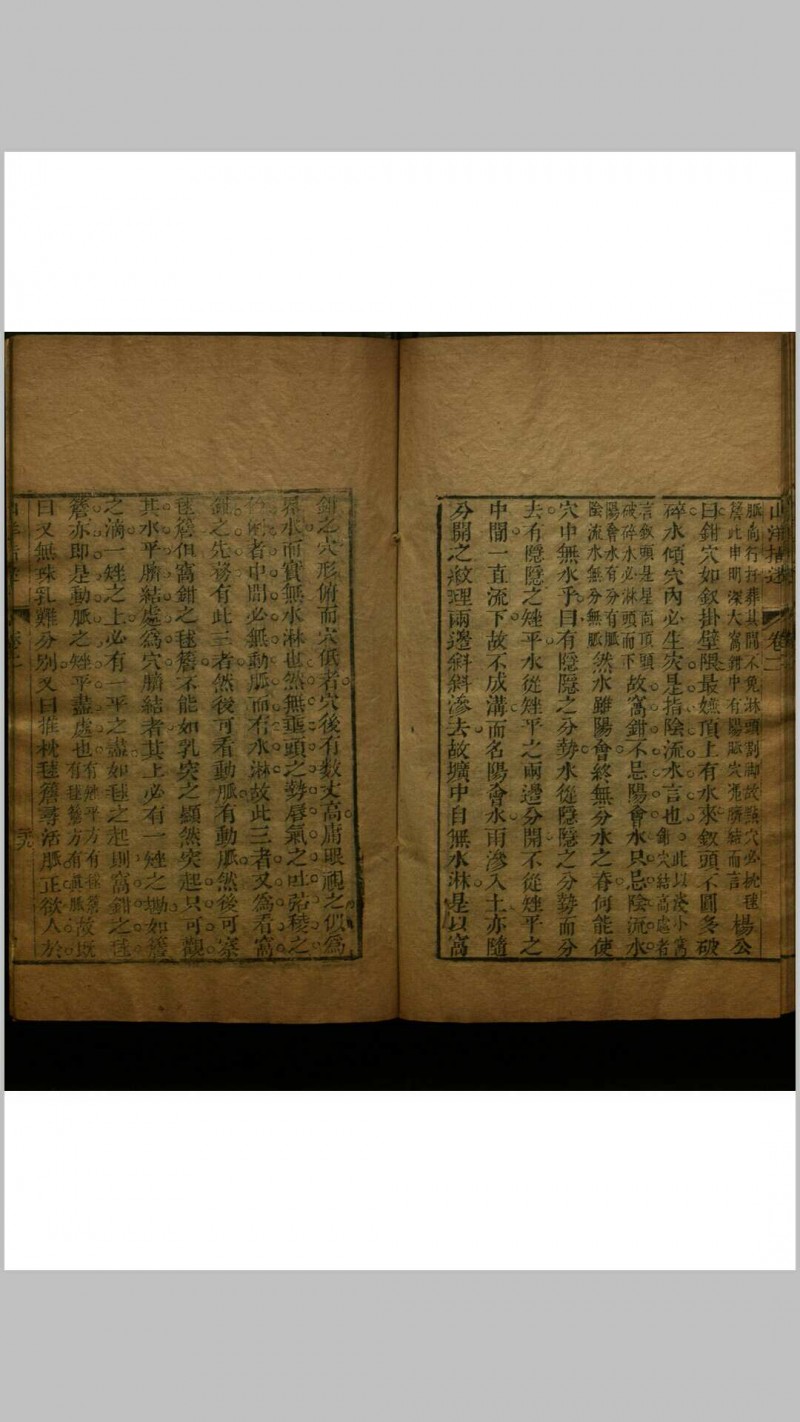 山洋指迷 卷二
脈尚行扦葬其間不免淋頭割脚故點穴必枕毬
簷此申明深大窩鉗中有陽脈穴兜臍結而言 楊公
曰鉗穴如釵掛壁隈最嫌頂上有水來釵頭不圓多破
碎水傾穴內必生灾是指陰流水言也 此以淺小窩
鉗穴結高處者
言釵頭是星面頂頭
破碎水必淋頭而下 故窩鉗不忌陽會水只忌陰流水
陽會水有分有脈
陰流水無分無脈 然水雖陽會終無分水之脊何能使
穴中無水乎曰有隱隱之分勢水從隱隱之分勢而分
去有隱隱之矬平水從矬平之兩邊分開不從矬平之
中間一直流下故不成溝而名陽會水雨滲入土亦隨
分開之紋理兩邊斜斜滲去故壙中自無水淋是以窩
鉗之穴形俯而穴低者穴後有数丈高庸眼視之似爲
界水而實無水淋也然無頭之勢唇氣之吐弦稜之
者中間必無動脈而有水淋故此三者又爲看窩
鉗之先務有此三者然後可看動脈有動脈然後可察
毬簷但窩鉗之毬簷不能如乳突之顯然突起只可觀
其水平臍結處爲穴臍結者其上必有一矬之坳如簷
之滴一矬之上必有一平之盡如毬之起則窩鉗之毬
簷亦即是動脈之矬平盡處也 有矬平方有毬簷
有毬簷方有眞脈 故既
曰又無殊乳難分別又曰推枕毬簷尋活脈正欲人於
山洋指迷 卷二 二九